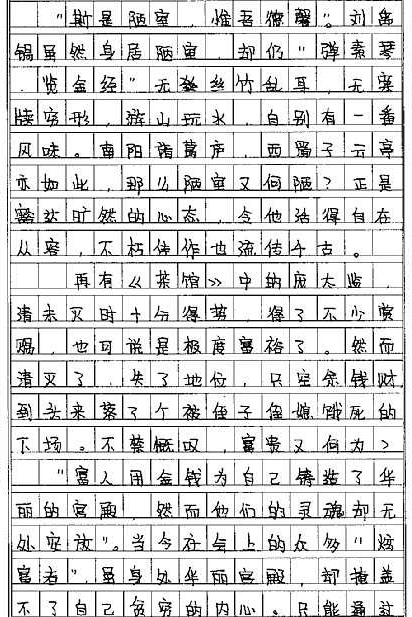 "斯是陋室，惟吾德馨"。刘禹
锡虽然身居陋室，却仍"弹素琴
，览金经"无丝竹乱耳，无案
牍劳形，游山玩水，自别有一番
风味。南阳诸葛庐，西蜀子云亭
亦如此，那么陋室又何陋？正是
豁达旷然的心态，令他活得自在
从容，不朽佳作也流传千古。
再有《茶馆》中的庞太监，
清未灭时十分得势，得了不少赏
赐，也可说是极度富裕了。然而
清灭了，失了地位，只空余钱财，
到头来落了个被侄子侄媳饿死的
下场。不禁慨叹，富贵又何为？
"富人用金钱为自己铸造了华
丽的宫殿，然而他们的灵魂却无
处安放"。当今社会上的众多"炫
富者"，虽身处华丽宫殿，却掩盖
不了自己贫穷的内心。只能通过